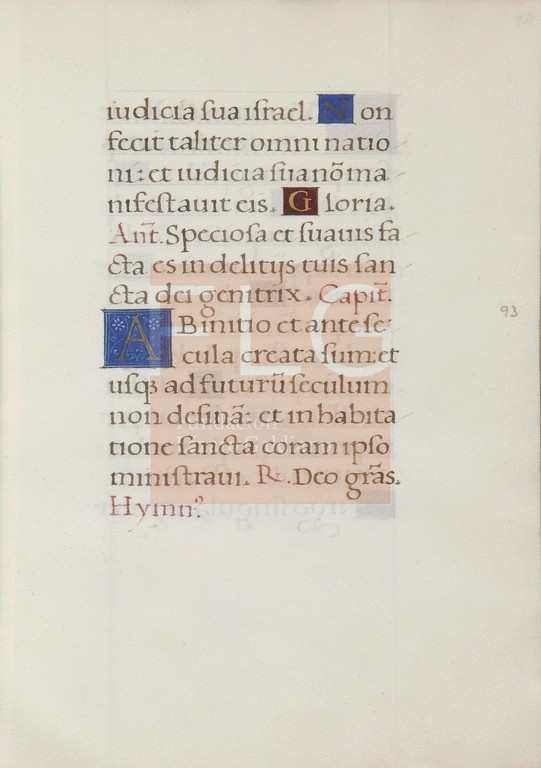 iudicia sua israel. Non
fecit taliter omni natio
ni: et iudicia sua nō ma
nifestavit eis. Gloria.
Añt. Speciosa et suavis fa
cta es in delitijs tuis san
cta dei genitrix. Capit̃.
AB initio et ante se
cula creata sum: et
usqȝ ad futurū seculum
non desinā: et in habita
tione sancta coram ipso
ministravi. R. Deo gr̃as.
Hymn⁹.
93
FLG
Fundación